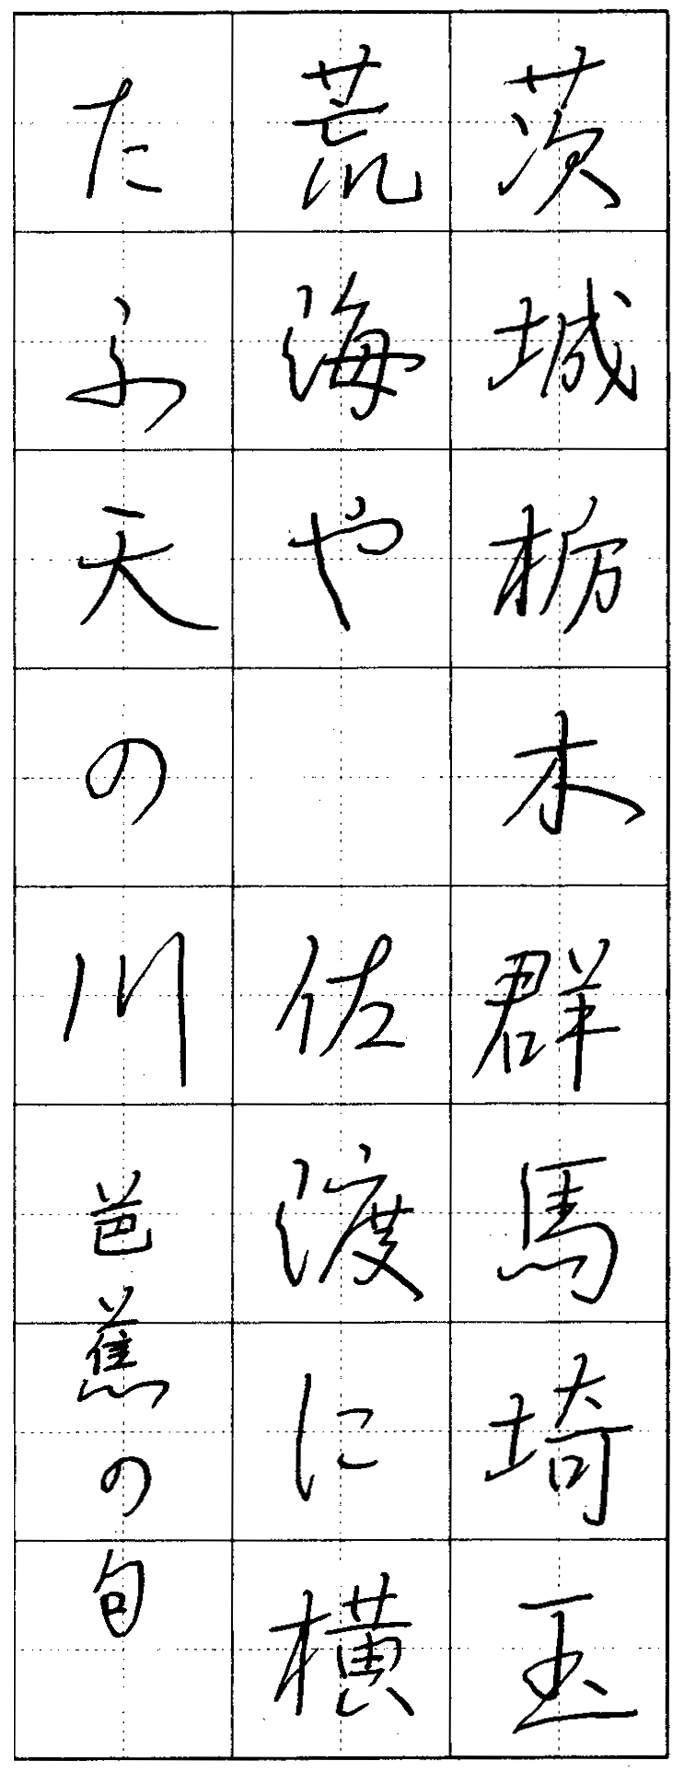 茨城栃木群馬埼玉
荒海や　佐渡に横
たふ天の川　芭蕉の句